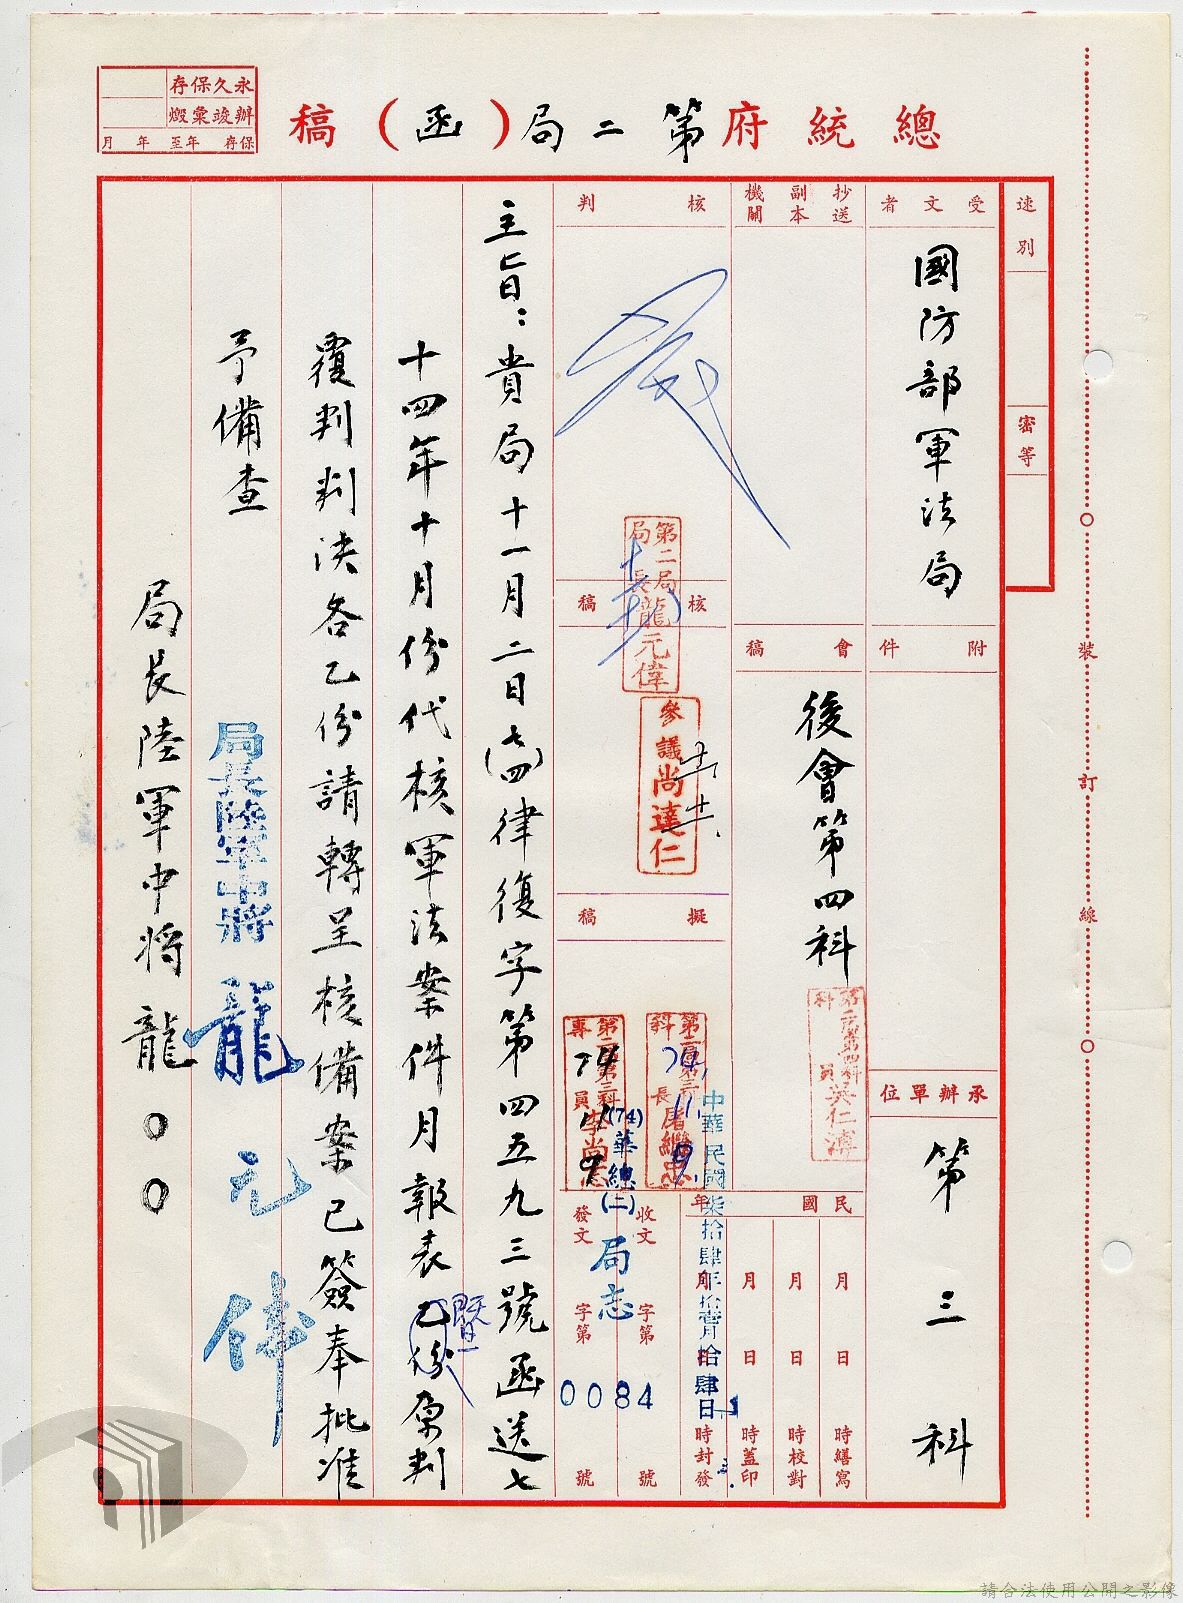 總統府第二局（函）稿
永久保存
辦竣彙燬
保存 年至 年 月
速別
密等
受文者
國防部軍法局
附件
承辦單位
第三科
抄送副本機關
會稿
後會第四科
核判
第二局局長龍元偉
核稿
參議尚達仁
擬稿
74 11 9
74. 11. 9.
民國 年
月 日 時繕寫
月 日 時校對
月 日 時蓋印
月 日 時封發
中華民國柒拾肆年拾壹月拾肆日
收文 字第 號
發文 字第 號
(74)華總(二)局志
0084
主旨：貴局十一月二日(七四)律復字第四五九三號函送七
十四年十月份代核軍法案件月報表乙份暨原判
覆判判決各乙份請轉呈核備案已簽奉批准
予備查
局長陸軍中將龍元偉
局長陸軍中將龍○○
裝訂線
請合法使用公開之影像